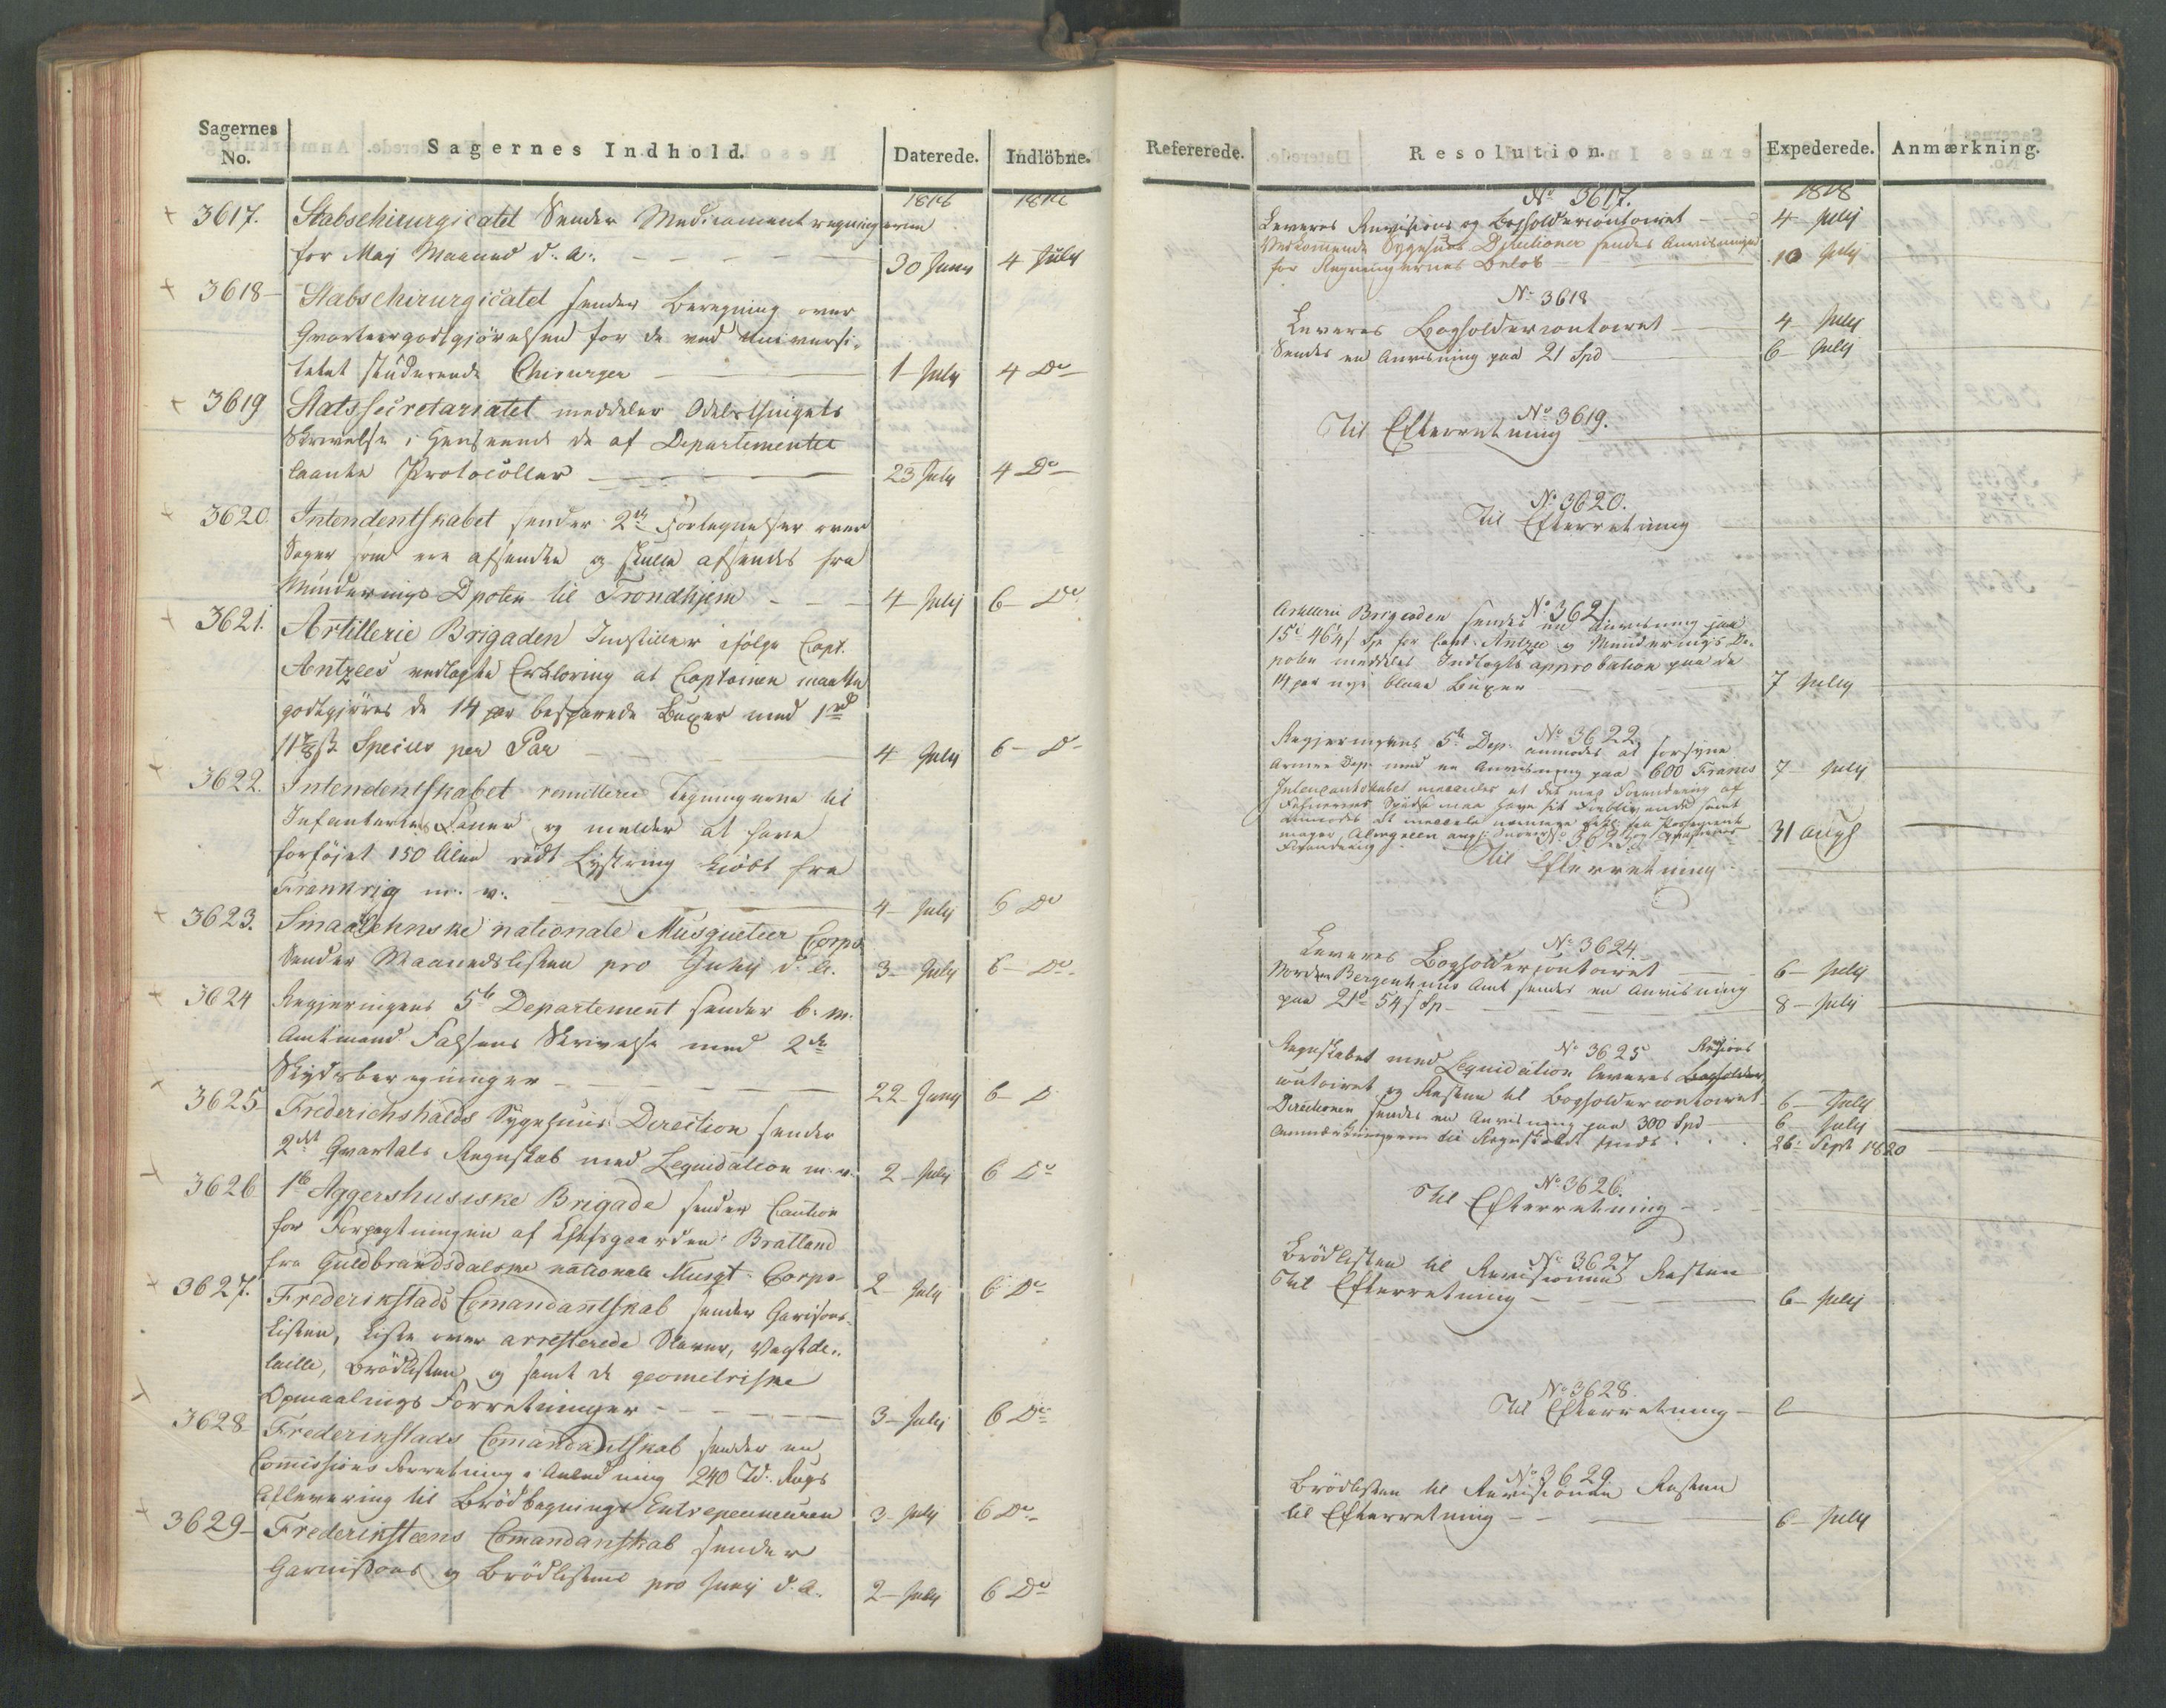 Sagernes No.
Sagernes Indhold.
Daterede.
Indlöbne.
1818
1818
3617. Stabschirurgicatet Sender Medicamentregningerne
for Maj Maaned d. A. 30 Juni 4 July
3618 Stabschirurgicatet sender Beregning over
Qvarteergodtgjörelsen for de ved Universi-
tetet studerende Chirurger 1 July 4 Do
3619 Statssecretariatet meddeler Odelsthingets
Skrivelse i Henseende de af Departementet
laante Protocoller 23 July 4 Do
3620. Intendentskabet sender 2de Fortegnelser over
Sager som ere afsendte og skulle afsendes fra
Munderings Depoten til Trondhjem 4 July 6 Do
3621. Artillerie Brigaden Indstiller ifölge Capt.
Antzees vedlagte Erklæring at Captainen maatte
godtgjöres de 14 par besparede Buxer med 1
11 7/8 ß Species per Par 4 July 6 D
3622. Intendentskabet remitterer Tegningerne til
Infanteriets Faner og melder at have
forföjet 150 Alen rödt kjöbt fra
Frankrig m. v. 4 July 6 Do
3623. Smaalehnske nationale Musqueteer Corps
Sender Maanedslisten pro Juny d. A. 3 July 6 Do
3624 Regjeringens 5te Departement sender b. m.
Amtmand Falsens Skrivelse med 2de
Skydsberegninger 22 Juny 6 D
3625 Frederichshalds Sygehuus Direction sender
2det Qvartals Regnskab med Leqvidation m. v. 2 July 6 Do
3626 1te Aggershusiske Brigade sender Caution
for Forpagtningen af Chefsgaarden Bratland
fra Guldbrandsdalske nationale Musqt. Corps 2 July 6 Do
3627. Frederikstads Comandantskab sender Garisons
Listen, Liste over arresterede Slaver, Vagtde-
taille, Brödlisten, og samt de geometriske
Opmaalings Forretninger 3 July 6 Do
3628 Frederikstads Comandantskab sender en
Comissions Forretning i Anledning 240 Td. Rugs
Aflevering til Brödbagnings Entrepeneuren 3 July 6 Do
3629 Frederiksteens Comandanskab sender
Garnisons og Brödlisterne pro Juny d. A. 2 July 6 Do
Refererede.
Resolution.
Expederede.
Anmærkning.
1818
No 3617.
Leveres Revisions og Bogholdercontoiret 4 July
Vedkomende Sygehuus Directioner sendes Anvisninger
for Regningernes Belöb 10 July
No 3618
Leveres Bogholdercontoiret 4 July
Sendes en Anvisning paa 21 Spd 6 July
No 3619.
Til Efterretning
No 3620.
Til Efterretning
No 3621
Artillerie Brigaden sendes en Anvisning paa
15 46 4/ Sp. for Capt. Antzee og Munderings De-
poten meddeles Indtægts approbation paa de
14 par nye blaae Buxer 7 July
No 3622
Regjeringens 5te Dep. anmodes at forsyne
Armee Dep. med en Anvisning paa 600 Francs 7 July
Intendantskabet meddeles at det med Forandring af
Fanernes maa have sit Forblivende samt
31 Aug
No 3623
Til Efterretning
No 3624.
Leveres Bogholdercontoiret 6 July
Nordre Bergenhuus Amt sendes en Anvisning
paa 21 54 ß Sp 8 July
No 3625
Regnskabet med Leqvidation leveres Revisions
contoiret og Resten til Bogholdercontoiret 6 July
Directionen sendes en Anvisning paa 300 Spd 6 July
Anmærkningerne til Regnskabet sendes 26 Sept 1820
No 3626.
Til Efterretning
No 3627
Brödlisten til Revisionen Resten
Til Efterretning 6 July
No 3628.
Til Efterretning
No 3629
Brödlisten til Revisionen Resten
til Efterretning 6 July